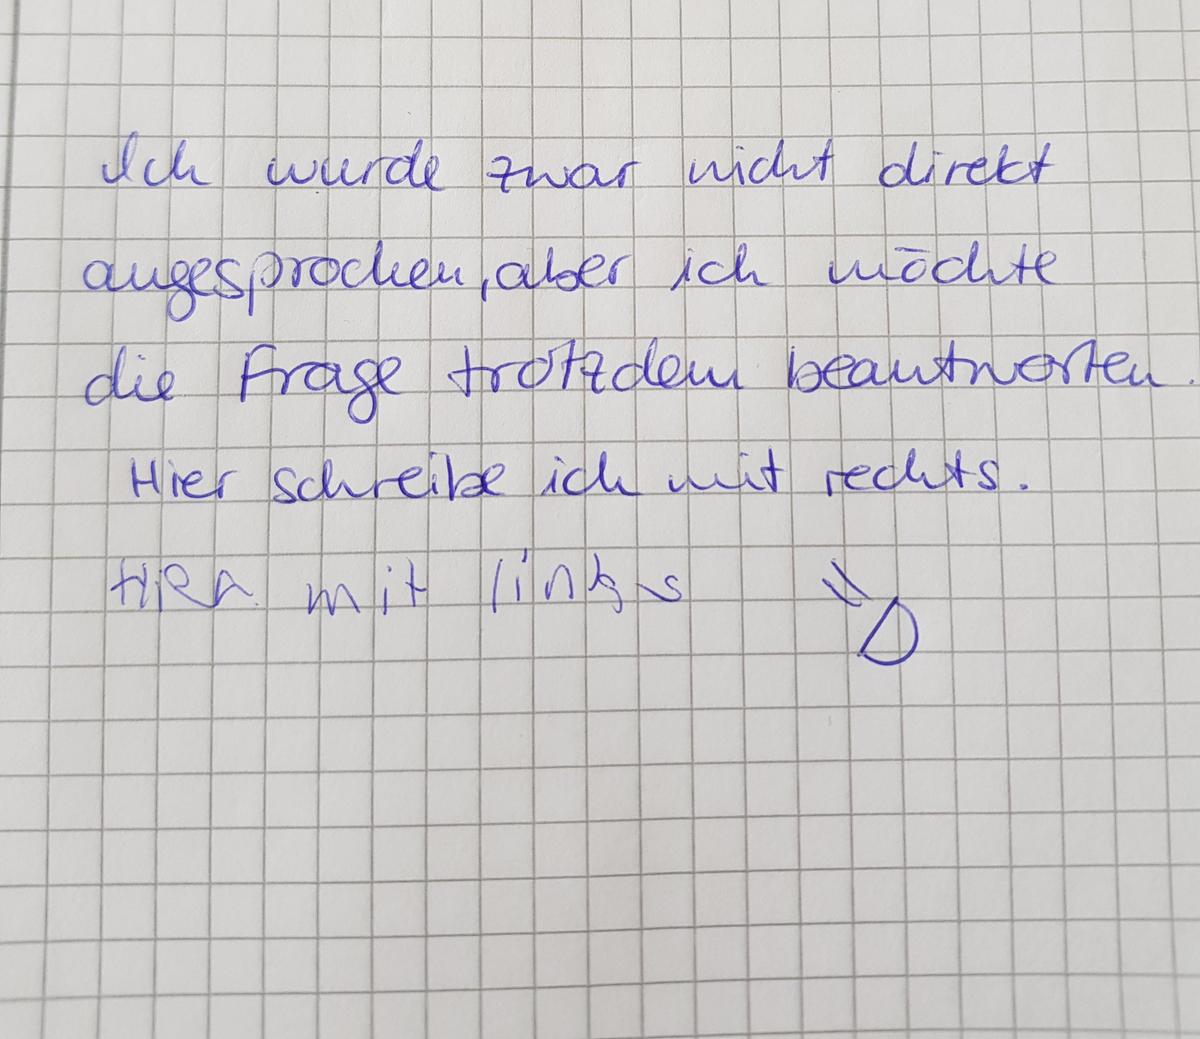 Ich wurde zwar nicht direkt
angesprochen, aber ich möchte
die Frage trotzdem beantworten.
Hier schreibe ich mit rechts.
Hier mit links "D